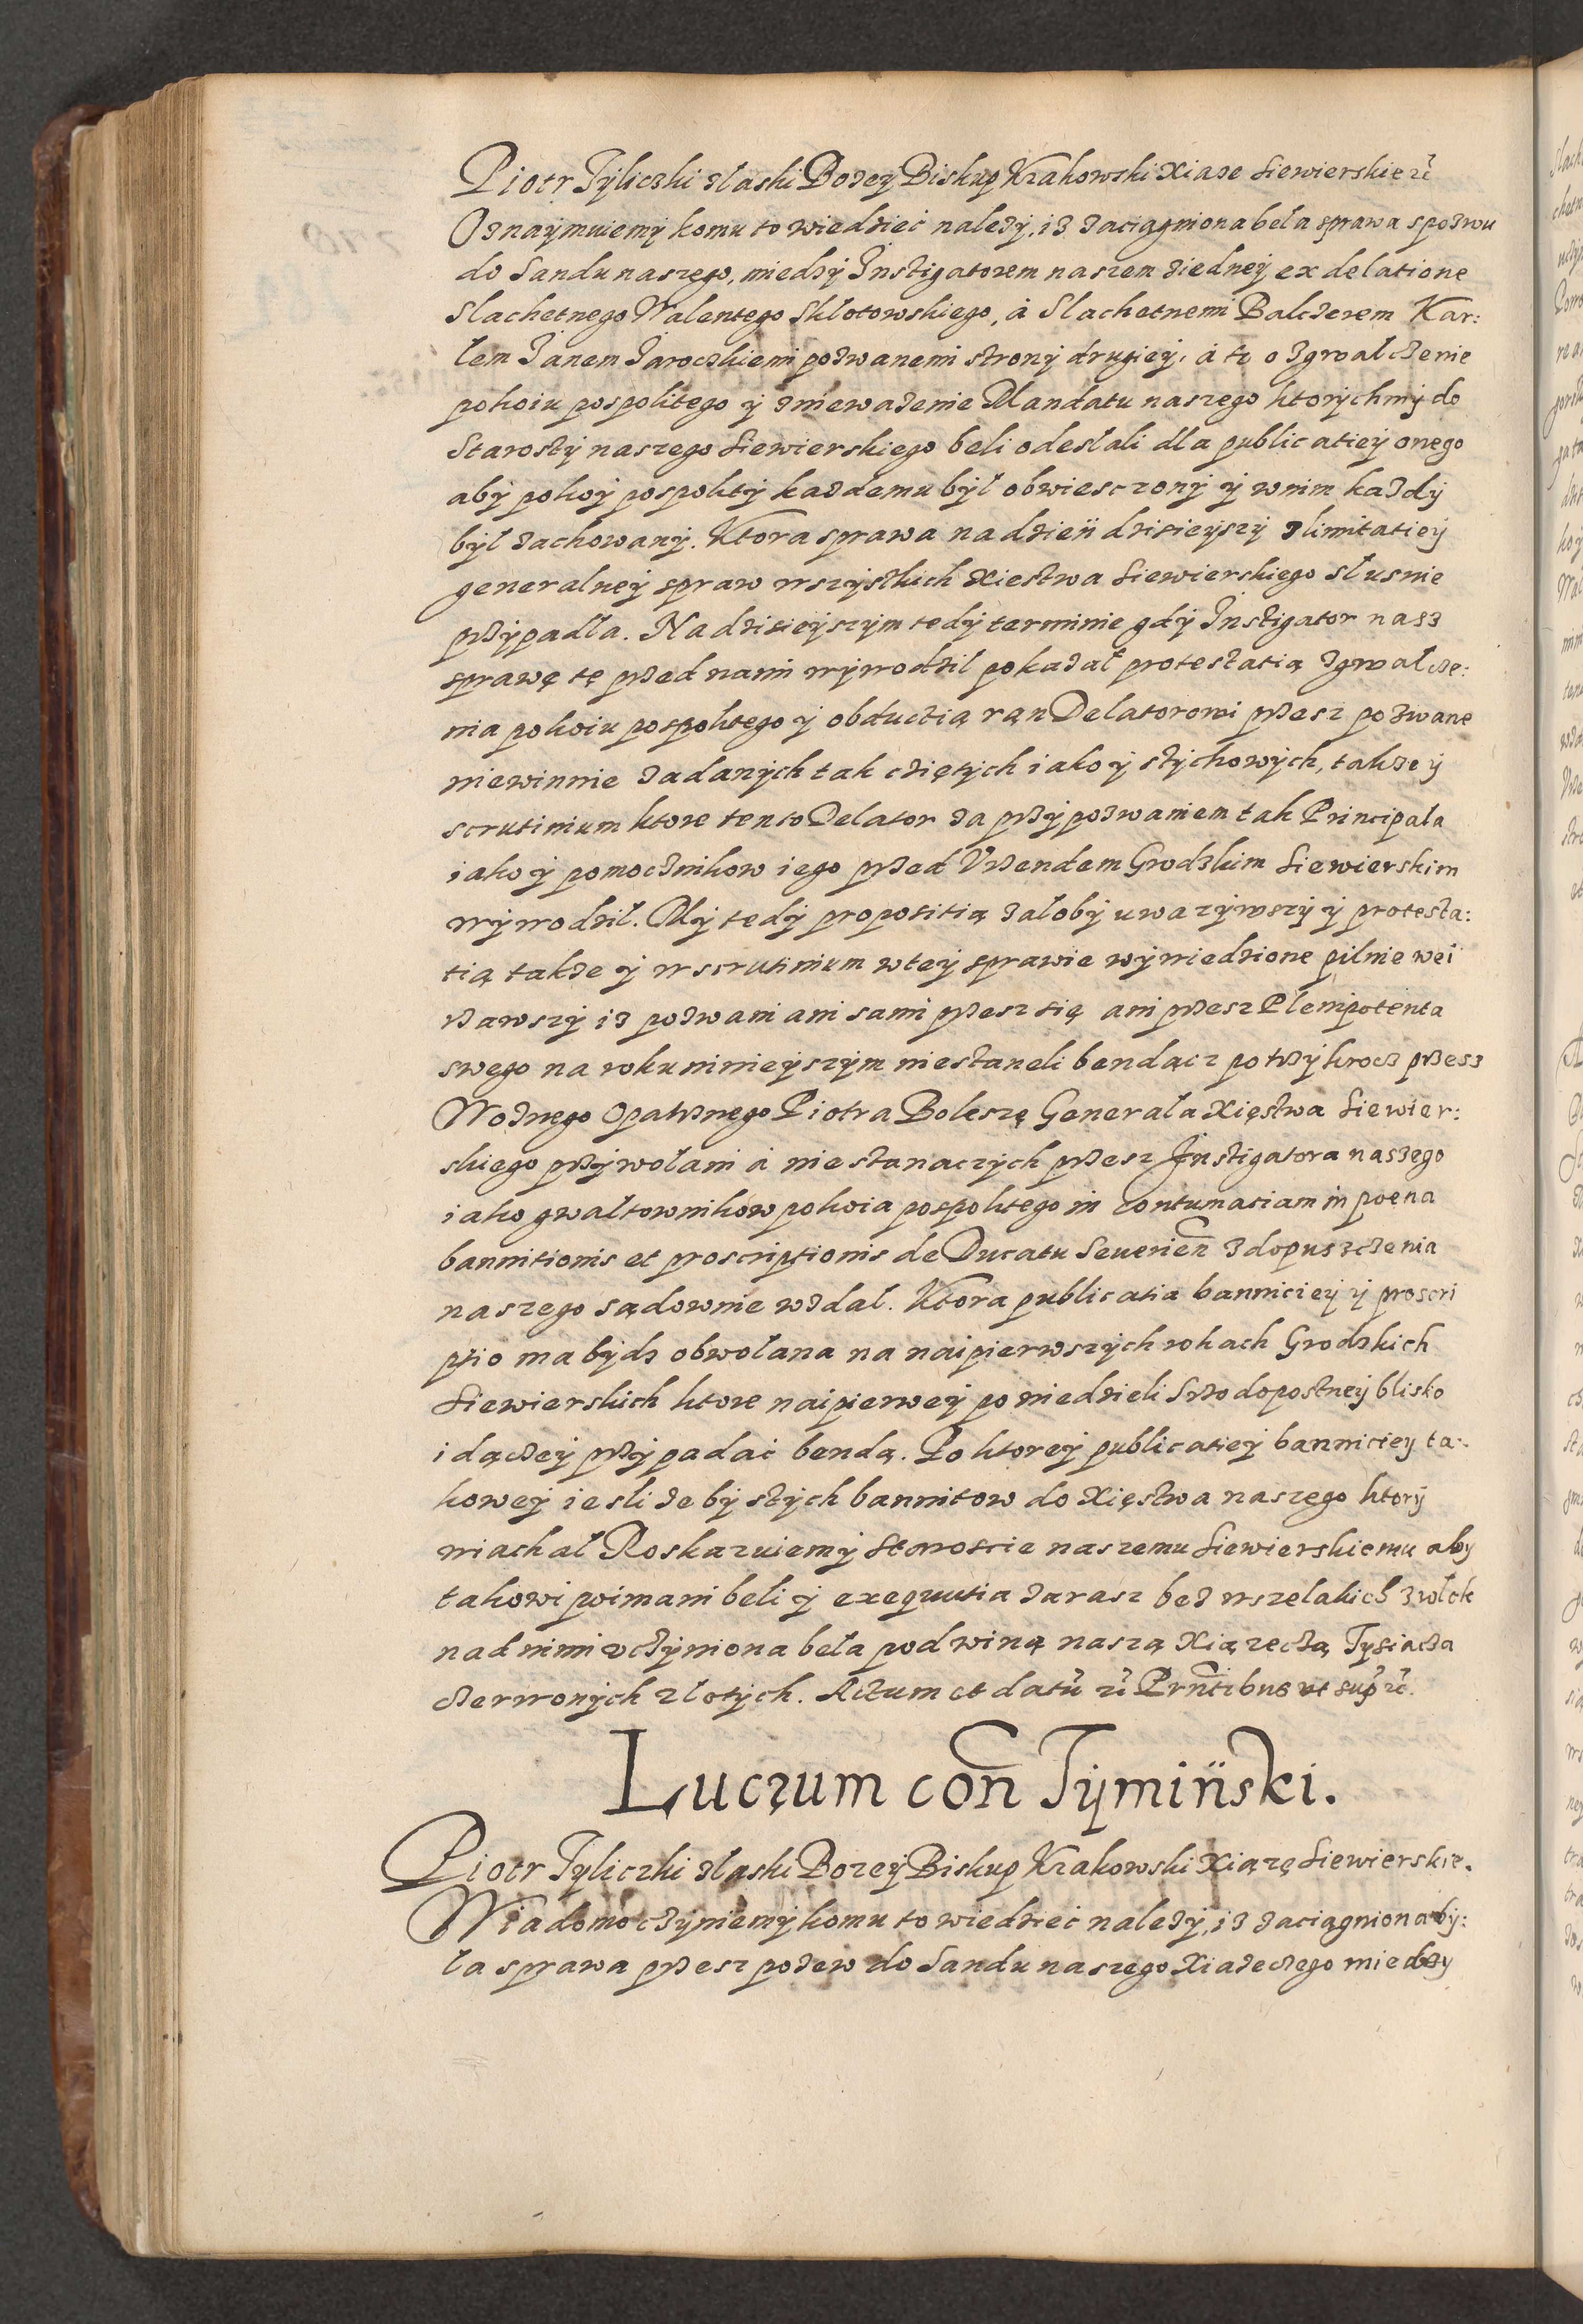 Piotr Tÿliczki złaski Bozeÿ Biskup Krakowski Xiaze Siewierskie ꝛc
Oznaÿmuiemÿ komu to wiedziec nalezÿ, iz zaciągniona beła sprawa spozwu
do Sandu naszego, miedzÿ Instigatorem naszem ziedneÿ ex delatione
Slachetnego Walentego Skłotowskiego, á Slachetnemi Balczerem Kar:
łem Janem Jaroczkiemi pozwanemi stronÿ drugieÿ, á to o zgwałczenie
pokoiu pospolitego ÿ zniewazenie Mandatu naszego ktorÿchmÿ do
Starostÿ naszego Siewierskiego beli odesłali dla publicatieÿ onego
abÿ pokoÿ pospolitÿ kazdemu bÿł obwiesczonÿ ÿ wnim kazdÿ
bÿł zachowanÿ. Ktora sprawa na dzień dzisieÿszÿ zlimitatieÿ
generalneÿ spraw wszÿstkich Xiestwa Siewierskiego słusnie
przÿpadła. Na dzisieÿszÿm tedÿ terminie gdÿ Instigator nasz
sprawę tę przed nami wÿwodził pokazał protestatią zgwałcze:
nia pokoiu pospolitego ÿ obductią ręn Delatorowi przesz pozwane
niewinnie zadanÿch tak cziętÿch iako ÿ stÿchowÿch, takze ÿ
scrutinium ktore tento Delator za przÿpozwaniem tak Principała
iako ÿ pomocznikow iego przed Vrzendem Grodzkim Siewierskim
wÿwodził. Mÿ tedÿ propositią załobÿ uwazÿwszÿ ÿ protesta:
tią takze ÿ w scrutinium wteÿ sprawie wÿwiedzione pilnie wei
rzawszÿ iz pozwani ani sami przesz się ani przesz Plenipotenta
swego na roku ninieÿszÿm niestaneli bendącz po trzÿkrocz przesz
Woznego opatrznego Piotra Boleszę Generała Xięstwa Siewier:
skiego przÿwołani á niestanaczÿch przesz Instigatora naszego
iako gwałtownikow pokoia pospolitego in contumatiam in poena
bannitionis et proscriptionis de Ducatu Seuerien̄ zdopuszczenia
naszego sądownie wzdał. Ktora publicatia banniciey ÿ proscri
ptio ma bÿdz obwołana na naipierwszÿch rokach Grodzkich
Siewierskich ktore naipierweÿ po niedzieli Srzodopostneÿ blisko
idączeÿ przÿpadać bendą. Po ktoreÿ publicatieÿ banniciey ta:
koweÿ iesli zebÿ stÿch bannitow do Xięstwa naszego ktorÿ
wiachał Roskazuiemÿ Staroscie naszemu Siewierskiemu aby
takowi poimani beli ÿ exequutia zarasz bez wszelakich zwłok
nad nimi vczÿniona beła pod winą naszą Xiązeczą Tysiacza
czerwonÿch złotÿch. Actum et datū ꝛc Prn̄tibus vt sup̄ ꝛc.
Lucrum con̄ Tÿmiński.
Piotr Tÿliczki złaski Bozeÿ Biskup Krakowski Xiązę Siewierskie.
Wiadomo czÿniemÿ komu to wiedzieć nalezÿ, iz zaciągniona bÿ:
ła sprawa przesz pozew do Sandu naszego Xiazeczego miedzy